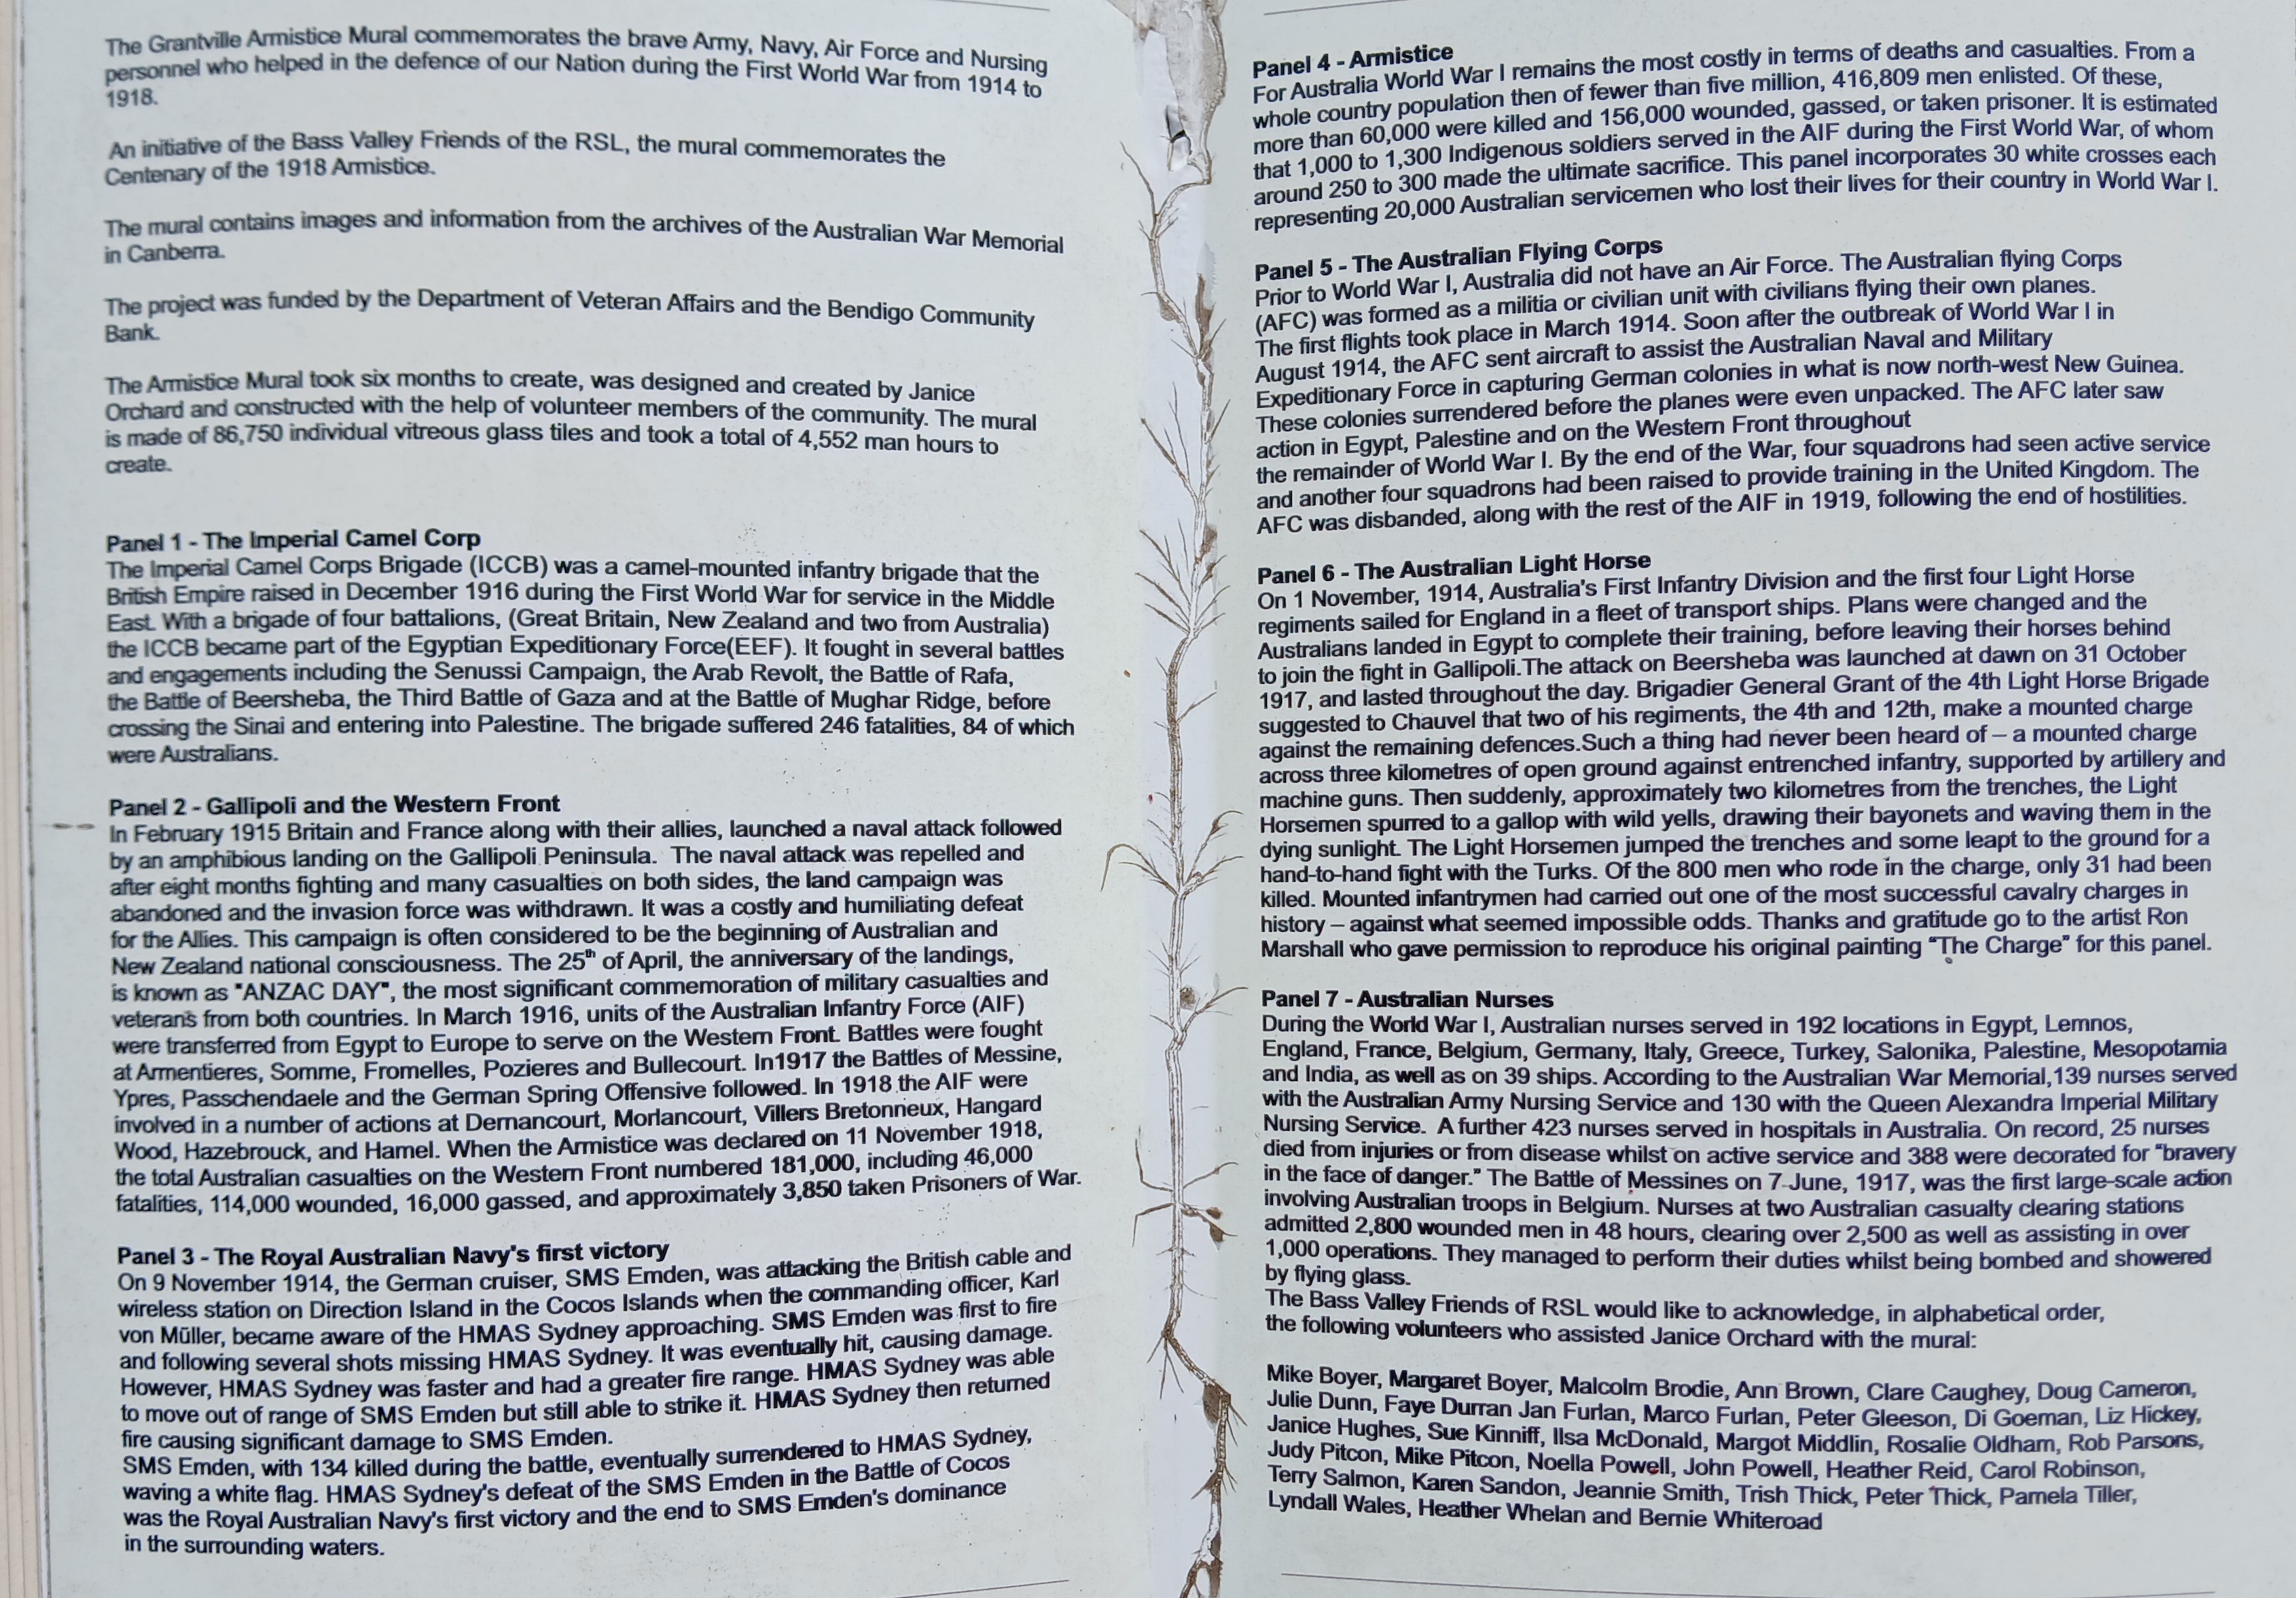 The Grantville Armistice Mural commemorates the brave Army, Navy, Air Force and Nursing
personnel who helped in the defence of our Nation during the First World War from 1914 to
1918.
An initiative of the Bass Valley Friends of the RSL, the mural commemorates the
Centenary of the 1918 Armistice.
The mural contains images and information from the archives of the Australian War Memorial
in Canberra.
The project was funded by the Department of Veteran Affairs and the Bendigo Community
Bank.
The Armistice Mural took six months to create, was designed and created by Janice
Orchard and constructed with the help of volunteer members of the community. The mural
is made of 86,750 individual vitreous glass tiles and took a total of 4,552 man hours to
create.
Panel 1 - The Imperial Camel Corp
The Imperial Camel Corps Brigade (ICCB) was a camel-mounted infantry brigade that the
British Empire raised in December 1916 during the First World War for service in the Middle
East. With a brigade of four battalions, (Great Britain, New Zealand and two from Australia)
the ICCB became part of the Egyptian Expeditionary Force(EEF). It fought in several battles
and engagements including the Senussi Campaign, the Arab Revolt, the Battle of Rafa,
the Battle of Beersheba, the Third Battle of Gaza and at the Battle of Mughar Ridge, before
crossing the Sinai and entering into Palestine. The brigade suffered 246 fatalities, 84 of which
were Australians.
Panel 2 - Gallipoli and the Western Front
In February 1915 Britain and France along with their allies, launched a naval attack followed
by an amphibious landing on the Gallipoli Peninsula. The naval attack was repelled and
after eight months fighting and many casualties on both sides, the land campaign was
abandoned and the invasion force was withdrawn. It was a costly and humiliating defeat
for the Allies. This campaign is often considered to be the beginning of Australian and
New Zealand national consciousness. The 25th of April, the anniversary of the landings,
is known as "ANZAC DAY", the most significant commemoration of military casualties and
veterans from both countries. In March 1916, units of the Australian Infantry Force (AIF)
were transferred from Egypt to Europe to serve on the Western Front. Battles were fought
at Armentieres, Somme, Fromelles, Pozieres and Bullecourt. In1917 the Battles of Messine,
Ypres, Passchendaele and the German Spring Offensive followed. In 1918 the AIF were
involved in a number of actions at Dernancourt, Morlancourt, Villers Bretonneux, Hangard
Wood, Hazebrouck, and Hamel. When the Armistice was declared on 11 November 1918,
the total Australian casualties on the Western Front numbered 181,000, including 46,000
fatalities, 114,000 wounded, 16,000 gassed, and approximately 3,850 taken Prisoners of War.
Panel 3 - The Royal Australian Navy's first victory
On 9 November 1914, the German cruiser, SMS Emden, was attacking the British cable and
wireless station on Direction Island in the Cocos Islands when the commanding officer, Karl
von Müller, became aware of the HMAS Sydney approaching. SMS Emden was first to fire
and following several shots missing HMAS Sydney. It was eventually hit, causing damage.
However, HMAS Sydney was faster and had a greater fire range. HMAS Sydney was able
to move out of range of SMS Emden but still able to strike it. HMAS Sydney then returned
fire causing significant damage to SMS Emden.
SMS Emden, with 134 killed during the battle, eventually surrendered to HMAS Sydney,
waving a white flag. HMAS Sydney's defeat of the SMS Emden in the Battle of Cocos
was the Royal Australian Navy's first victory and the end to SMS Emden's dominance
in the surrounding waters.
Panel 4 - Armistice
For Australia World War I remains the most costly in terms of deaths and casualties. From a
whole country population then of fewer than five million, 416,809 men enlisted. Of these,
more than 60,000 were killed and 156,000 wounded, gassed, or taken prisoner. It is estimated
that 1,000 to 1,300 Indigenous soldiers served in the AIF during the First World War, of whom
around 250 to 300 made the ultimate sacrifice. This panel incorporates 30 white crosses each
representing 20,000 Australian servicemen who lost their lives for their country in World War I.
Panel 5 - The Australian Flying Corps
Prior to World War I, Australia did not have an Air Force. The Australian flying Corps
(AFC) was formed as a militia or civilian unit with civilians flying their own planes.
The first flights took place in March 1914. Soon after the outbreak of World War I in
August 1914, the AFC sent aircraft to assist the Australian Naval and Military
Expeditionary Force in capturing German colonies in what is now north-west New Guinea.
These colonies surrendered before the planes were even unpacked. The AFC later saw
action in Egypt, Palestine and on the Western Front throughout
the remainder of World War I. By the end of the War, four squadrons had seen active service
and another four squadrons had been raised to provide training in the United Kingdom. The
AFC was disbanded, along with the rest of the AIF in 1919, following the end of hostilities.
Panel 6 - The Australian Light Horse
On 1 November, 1914, Australia's First Infantry Division and the first four Light Horse
regiments sailed for England in a fleet of transport ships. Plans were changed and the
Australians landed in Egypt to complete their training, before leaving their horses behind
to join the fight in Gallipoli.The attack on Beersheba was launched at dawn on 31 October
1917, and lasted throughout the day. Brigadier General Grant of the 4th Light Horse Brigade
suggested to Chauvel that two of his regiments, the 4th and 12th, make a mounted charge
against the remaining defences.Such a thing had never been heard of – a mounted charge
across three kilometres of open ground against entrenched infantry, supported by artillery and
machine guns. Then suddenly, approximately two kilometres from the trenches, the Light
Horsemen spurred to a gallop with wild yells, drawing their bayonets and waving them in the
dying sunlight. The Light Horsemen jumped the trenches and some leapt to the ground for a
hand-to-hand fight with the Turks. Of the 800 men who rode in the charge, only 31 had been
killed. Mounted infantrymen had carried out one of the most successful cavalry charges in
history – against what seemed impossible odds. Thanks and gratitude go to the artist Ron
Marshall who gave permission to reproduce his original painting “The Charge” for this panel.
Panel 7 - Australian Nurses
During the World War I, Australian nurses served in 192 locations in Egypt, Lemnos,
England, France, Belgium, Germany, Italy, Greece, Turkey, Salonika, Palestine, Mesopotamia
and India, as well as on 39 ships. According to the Australian War Memorial,139 nurses served
with the Australian Army Nursing Service and 130 with the Queen Alexandra Imperial Military
Nursing Service. A further 423 nurses served in hospitals in Australia. On record, 25 nurses
died from injuries or from disease whilst on active service and 388 were decorated for “bravery
in the face of danger.” The Battle of Messines on 7 June, 1917, was the first large-scale action
involving Australian troops in Belgium. Nurses at two Australian casualty clearing stations
admitted 2,800 wounded men in 48 hours, clearing over 2,500 as well as assisting in over
1,000 operations. They managed to perform their duties whilst being bombed and showered
by flying glass.
The Bass Valley Friends of RSL would like to acknowledge, in alphabetical order,
the following volunteers who assisted Janice Orchard with the mural:
Mike Boyer, Margaret Boyer, Malcolm Brodie, Ann Brown, Clare Caughey, Doug Cameron,
Julie Dunn, Faye Durran Jan Furlan, Marco Furlan, Peter Gleeson, Di Goeman, Liz Hickey,
Janice Hughes, Sue Kinniff, Ilsa McDonald, Margot Middlin, Rosalie Oldham, Rob Parsons,
Judy Pitcon, Mike Pitcon, Noella Powell, John Powell, Heather Reid, Carol Robinson,
Terry Salmon, Karen Sandon, Jeannie Smith, Trish Thick, Peter Thick, Pamela Tiller,
Lyndall Wales, Heather Whelan and Bernie Whiteroad